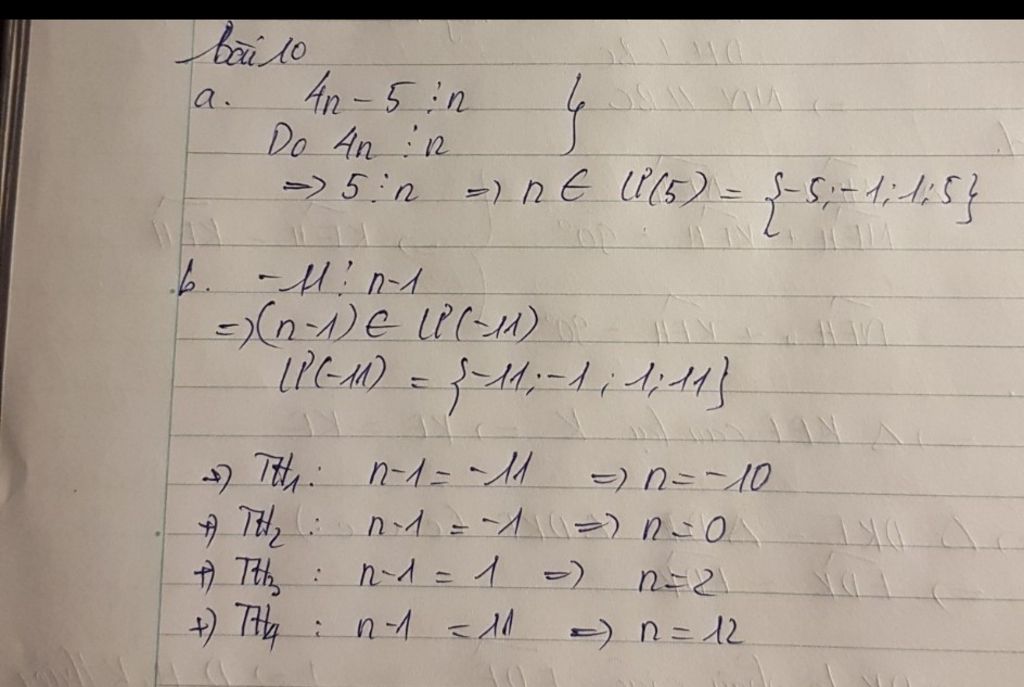 Bài 10
a. 4n - 5 ⋮ n }
Do 4n ⋮ n
=> 5 ⋮ n => n ∈ Ư(5) = {-5; -1; 1; 5}
b. -11 ⋮ n-1
=> (n-1) ∈ Ư(-11)
Ư(-11) = {-11; -1; 1; 11}
+) TH1: n-1 = -11 => n = -10
+) TH2: n-1 = -1 => n = 0
+) TH3: n-1 = 1 => n = 2
+) TH4: n-1 = 11 => n = 12